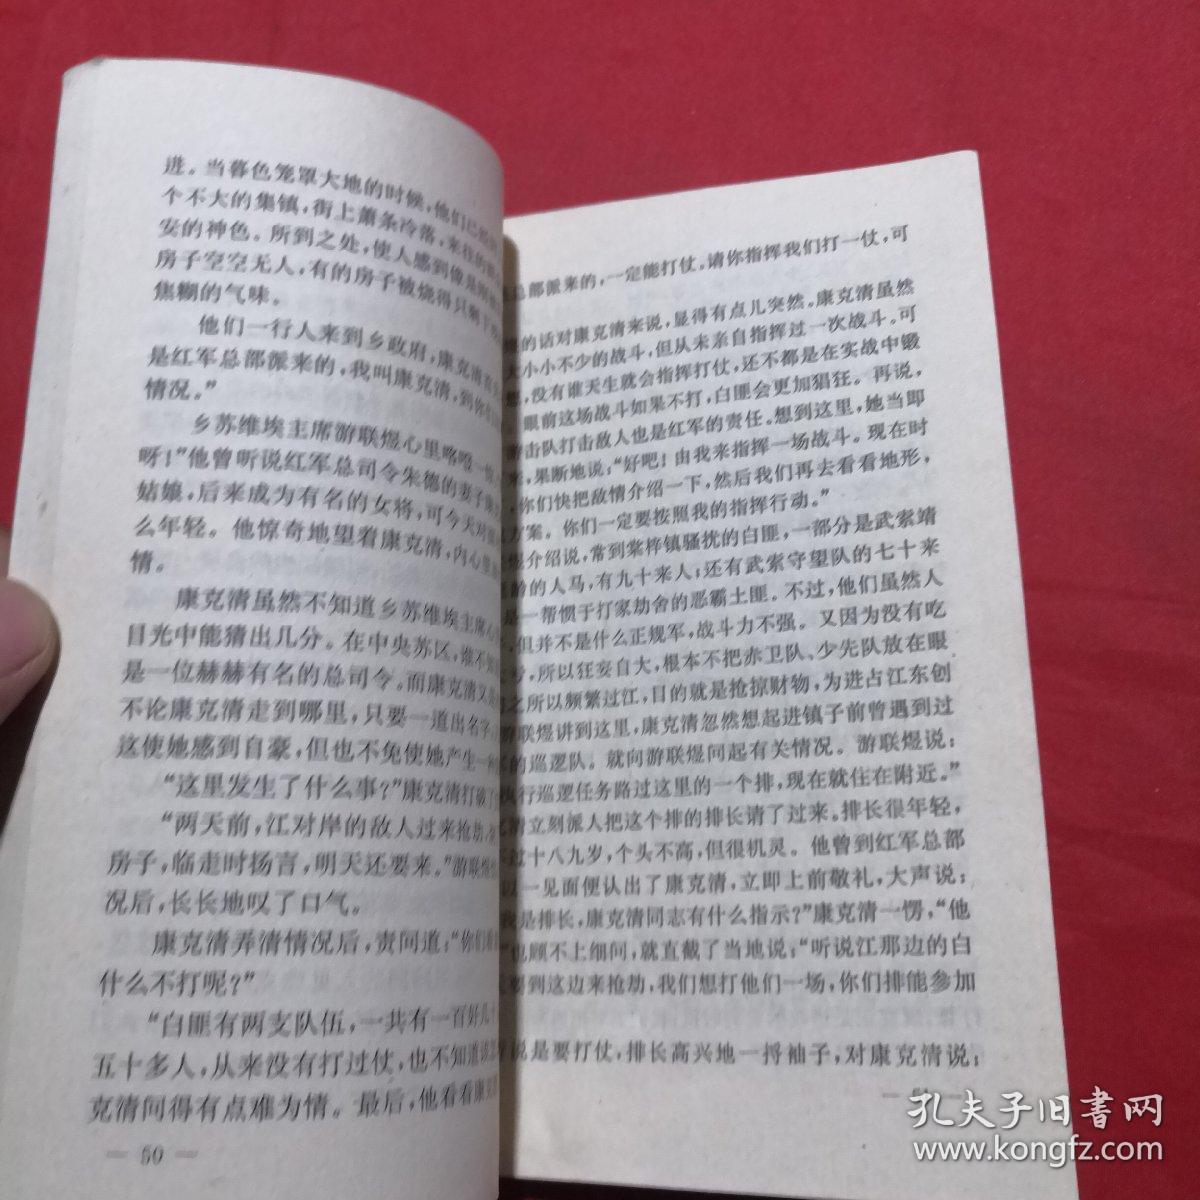 进。当暮色笼罩大地的时候，他们已经
个不大的集镇，街上萧条冷落，来往的
安的神色。所到之处，使人感到像是刚
房子空空无人，有的房子被烧得只剩下
焦糊的气味。
他们一行人来到乡政府，康克清
是红军总部派来的，我叫康克清，到你们
情况。”
乡苏维埃主席游联煜心里咯噔一
呀！”他曾听说红军总司令朱德的妻子康
姑娘，后来成为有名的女将，可今天对
么年轻。他惊奇地望着康克清，内心里
情。
康克清虽然不知道乡苏维埃主席心
目光中能猜出几分。在中央苏区，谁不知
是一位赫赫有名的总司令。而康克清又
不论康克清走到哪里，只要一道出名字，
这使她感到自豪，但也不免使她产生一种
“这里发生了什么事？”康克清打破了
“两天前，江对岸的敌人过来抢劫，
房子，临走时扬言，明天还要来。”游联煜
况后，长长地叹了口气。
康克清弄清情况后，责问道：“你们
什么不打呢？”
“白匪有两支队伍，一共有一百好几十
五十多人，从来没有打过仗，也不知道
克清问得有点难为情。最后，他看看康克
— 50 —
总部派来的，一定能打仗，请你指挥我们打一仗，可
的话对康克清来说，显得有点儿突然。康克清虽然
大小小不少的战斗，但从未亲自指挥过一次战斗。可
想，没有谁天生就会指挥打仗，还不都是在实战中锻
眼前这场战斗如果不打，白匪会更加猖狂。再说，
游击队打击敌人也是红军的责任。想到这里，她当即
来，果断地说：“好吧！由我来指挥一场战斗。现在时
你们快把敌情介绍一下，然后我们再去看看地形，
方案。你们一定要按照我的指挥行动。”
煜介绍说，常到棠梓镇骚扰的白匪，一部分是武索靖
的人马，有九十来人；还有武索守望队的七十来
是一帮惯于打家劫舍的恶霸土匪。不过，他们虽然人
但并不是什么正规军，战斗力不强。又因为没有吃
亏，所以狂妄自大，根本不把赤卫队、少先队放在眼
之所以频繁过江，目的就是抢掠财物，为进占江东创
游联煜讲到这里，康克清忽然想起进镇子前曾遇到过
的巡逻队。就向游联煜问起有关情况。游联煜说：
执行巡逻任务路过这里的一个排，现在就住在附近。”
清立刻派人把这个排的排长请了过来。排长很年轻，
过十八九岁，个头不高，但很机灵。他曾到红军总部
以一见面便认出了康克清，立即上前敬礼，大声说：
我是排长，康克清同志有什么指示？”康克清一愣，“他
”也顾不上细问，就直截了当地说：“听说江那边的白
要到这边来抢劫，我们想打他们一场，你们排能参加
说是要打仗，排长高兴地一捋袖子，对康克清说：
孔夫子旧书网
www.kongfz.com